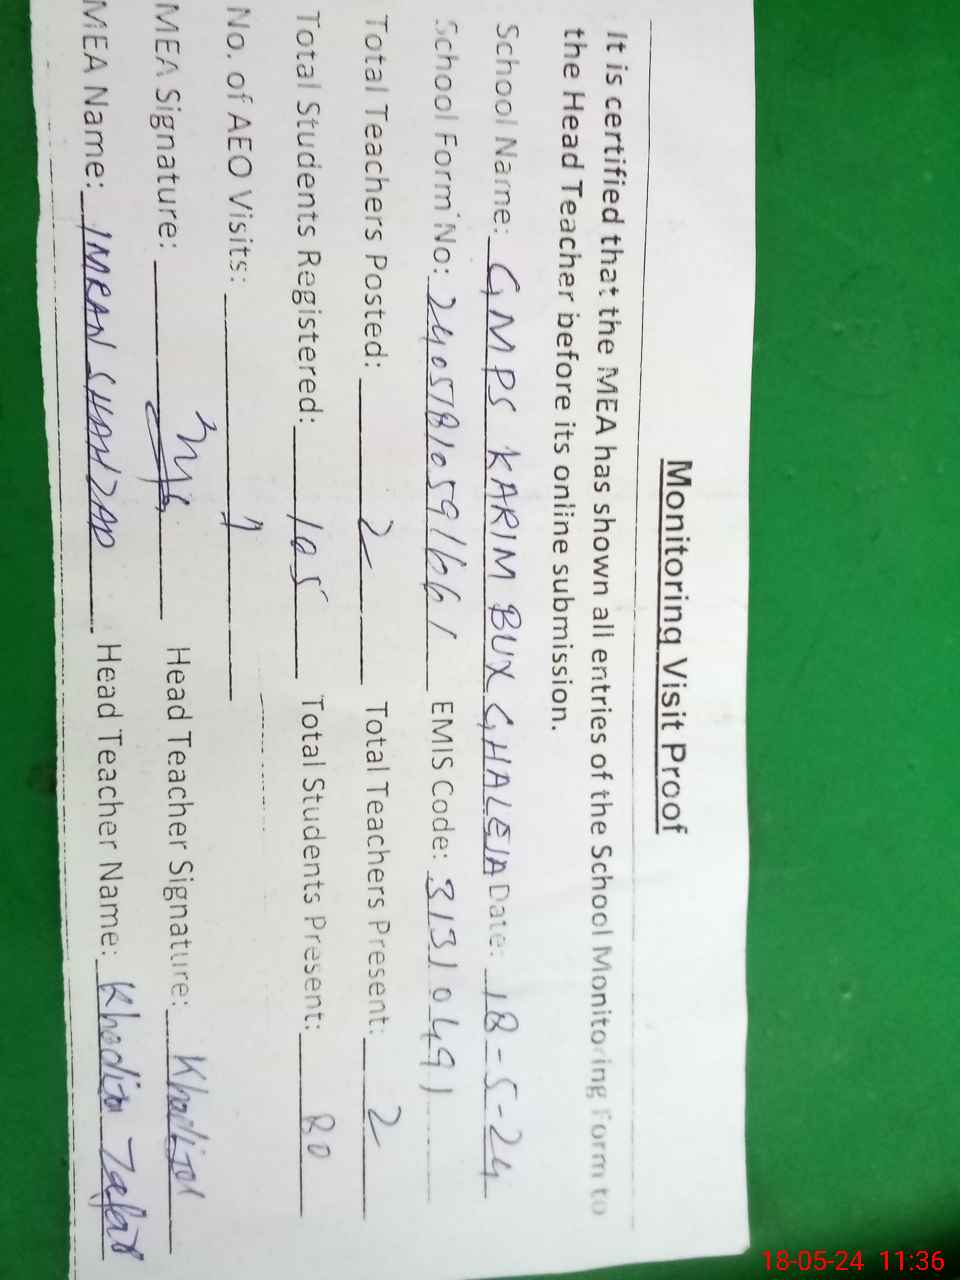 Monitoring Visit Proof
It is certified that the MEA has shown all entries of the School Monitoring Form to
the Head Teacher before its online submission.
School Name: GMPS KARIM BUX GHALEJA Date: 18-5-24
School Form No: 24051810591661 EMIS Code: 31310491
Total Teachers Posted: 2 Total Teachers Present: 2
Total Students Registered: 105 Total Students Present: 80
No. of AEO Visits: 1
MEA Signature: Head Teacher Signature: Khadija
MEA Name: IMRAN SHAHZAD Head Teacher Name: Khadija Zafar
18-05-24 11:36